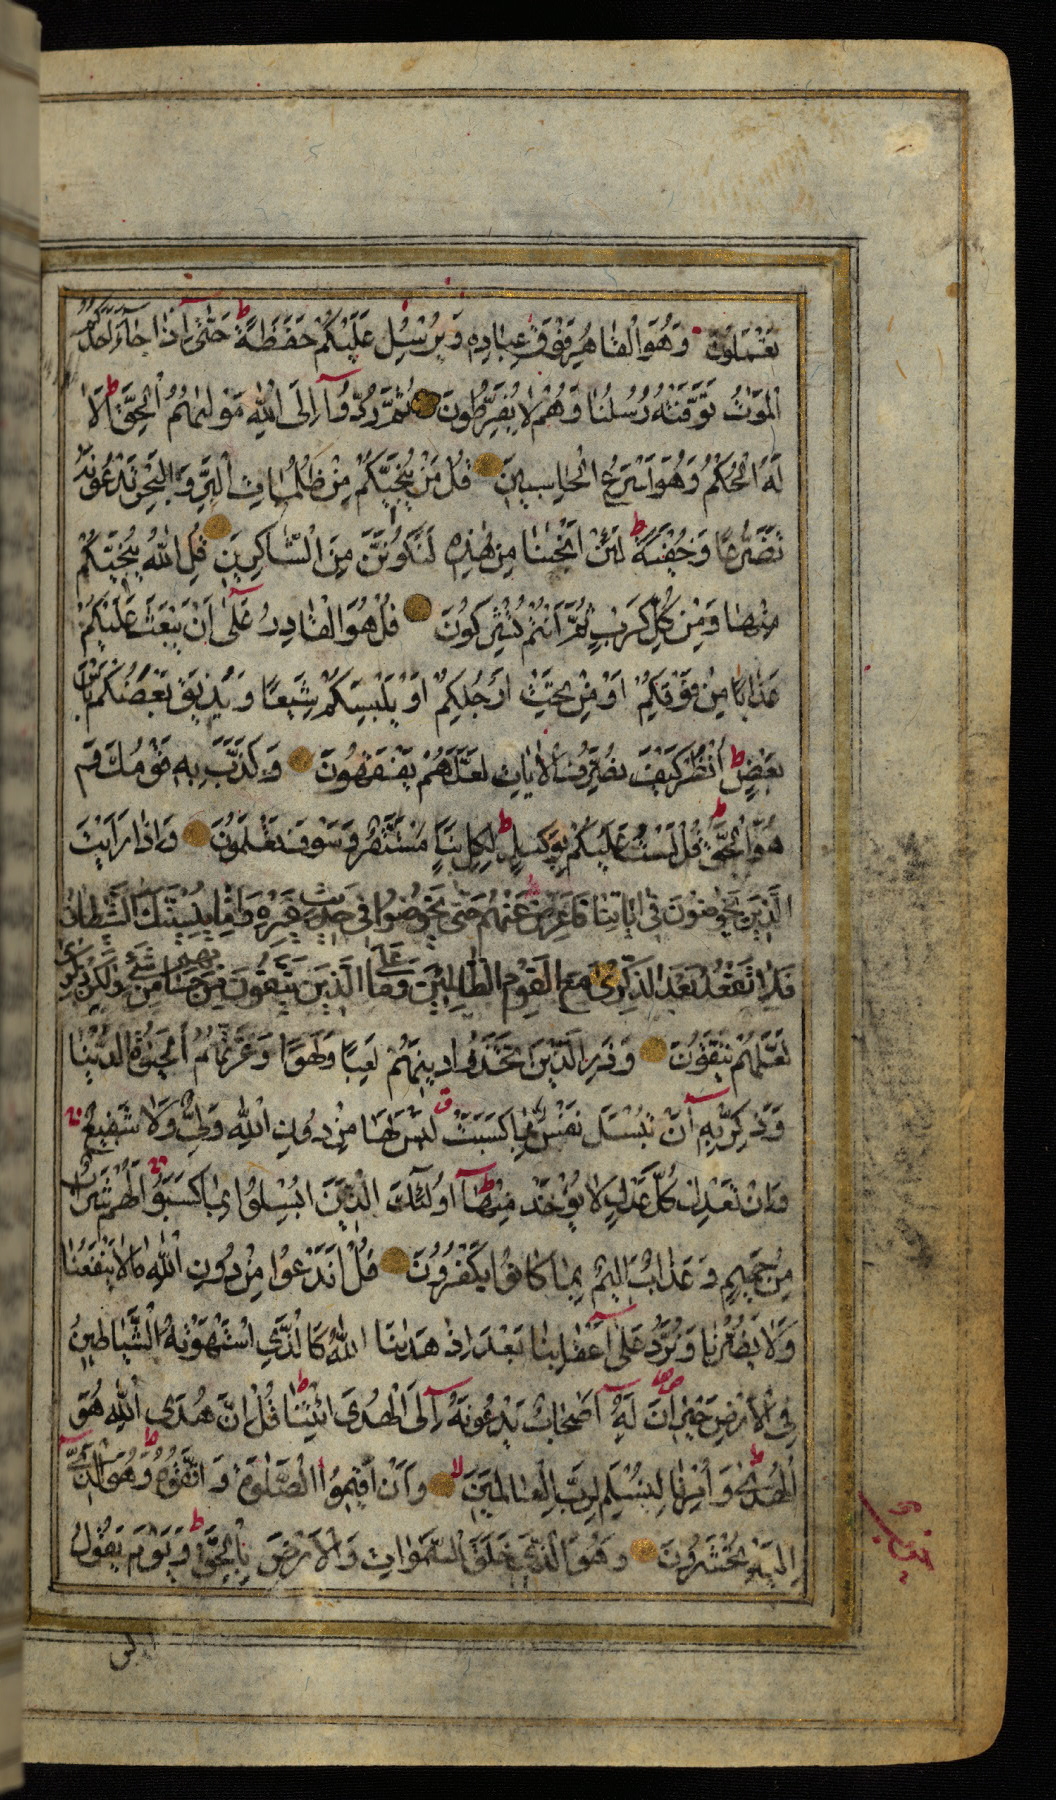 تَعْمَلُونَ وَهُوَ الْقَاهِرُ فَوْقَ عِبَادِهِ وَيُرْسِلُ عَلَيْكُمْ حَفَظَةً ط حَتّٰى اِذَا جَاءَ اَحَدَكُمُ
الْمَوْتُ تَوَفَّتْهُ رُسُلُنَا وَهُمْ لَا يُفَرِّطُونَ ثُمَّ رُدُّوا اِلَى اللّٰهِ مَوْلٰيهُمُ الْحَقِّ ط اَلَا
لَهُ الْحُكْمُ وَهُوَ اَسْرَعُ الْحَاسِبِينَ قُلْ مَنْ يُنَجِّيكُمْ مِنْ ظُلُمَاتِ الْبَرِّ وَالْبَحْرِ تَدْعُونَهُ
تَضَرُّعًا وَخُفْيَةً ط لَئِنْ اَنْجٰنَا مِنْ هٰذِهِ لَنَكُونَنَّ مِنَ الشَّاكِرِينَ قُلِ اللّٰهُ يُنَجِّيكُمْ
مِنْهَا وَمِنْ كُلِّ كَرْبٍ ثُمَّ اَنْتُمْ تُشْرِكُونَ قُلْ هُوَ الْقَادِرُ عَلٰى اَنْ يَبْعَثَ عَلَيْكُمْ
عَذَابًا مِنْ فَوْقِكُمْ اَوْ مِنْ تَحْتِ اَرْجُلِكُمْ اَوْ يَلْبِسَكُمْ شِيَعًا وَيُذِيقَ بَعْضَكُمْ بَاْسَ
بَعْضٍ ط اُنْظُرْ كَيْفَ نُصَرِّفُ الْاٰيَاتِ لَعَلَّهُمْ يَفْقَهُونَ وَكَذَّبَ بِهِ قَوْمُكَ وَ
هُوَ الْحَقُّ ط قُلْ لَسْتُ عَلَيْكُمْ بِوَكِيلٍ ط لِكُلِّ نَبَاٍ مُسْتَقَرٌّ وَسَوْفَ تَعْلَمُونَ وَاِذَا رَاَيْتَ
الَّذِينَ يَخُوضُونَ فِي اٰيَاتِنَا فَاَعْرِضْ عَنْهُمْ حَتّٰى يَخُوضُوا فِي حَدِيثٍ غَيْرِهِ وَاِمَّا يُنْسِيَنَّكَ الشَّيْطَانُ
فَلَا تَقْعُدْ بَعْدَ الذِّكْرٰى مَعَ الْقَوْمِ الظَّالِمِينَ وَمَا عَلَى الَّذِينَ يَتَّقُونَ مِنْ حِسَابِهِمْ مِنْ شَيْءٍ وَلٰكِنْ ذِكْرٰى
لَعَلَّهُمْ يَتَّقُونَ وَذَرِ الَّذِينَ اتَّخَذُوا دِينَهُمْ لَعِبًا وَلَهْوًا وَغَرَّتْهُمُ الْحَيٰوةُ الدُّنْيَا
وَذَكِّرْ بِهِ اَنْ تُبْسَلَ نَفْسٌ بِمَا كَسَبَتْ ق لَيْسَ لَهَا مِنْ دُونِ اللّٰهِ وَلِيٌّ وَلَا شَفِيعٌ
وَاِنْ تَعْدِلْ كُلَّ عَدْلٍ لَا يُؤْخَذْ مِنْهَا ط اُولٰئِكَ الَّذِينَ اُبْسِلُوا بِمَا كَسَبُوا لَهُمْ شَرَابٌ
مِنْ حَمِيمٍ وَعَذَابٌ اَلِيمٌ بِمَا كَانُوا يَكْفُرُونَ قُلْ اَنَدْعُوا مِنْ دُونِ اللّٰهِ مَا لَا يَنْفَعُنَا
وَلَا يَضُرُّنَا وَنُرَدُّ عَلٰى اَعْقَابِنَا بَعْدَ اِذْ هَدٰينَا اللّٰهُ كَالَّذِي اسْتَهْوَتْهُ الشَّيَاطِينُ
فِي الْاَرْضِ حَيْرَانَ لَهُ اَصْحَابٌ يَدْعُونَهُ اِلَى الْهُدَى ائْتِنَا ط قُلْ اِنَّ هُدَى اللّٰهِ هُوَ
الْهُدٰى ط وَاُمِرْنَا لِنُسْلِمَ لِرَبِّ الْعَالَمِينَ لا وَاَنْ اَقِيمُوا الصَّلٰوةَ وَاتَّقُوهُ ط وَهُوَ الَّذِي
اِلَيْهِ تُحْشَرُونَ وَهُوَ الَّذِي خَلَقَ السَّمٰوَاتِ وَالْاَرْضَ بِالْحَقِّ ط وَيَوْمَ يَقُولُ